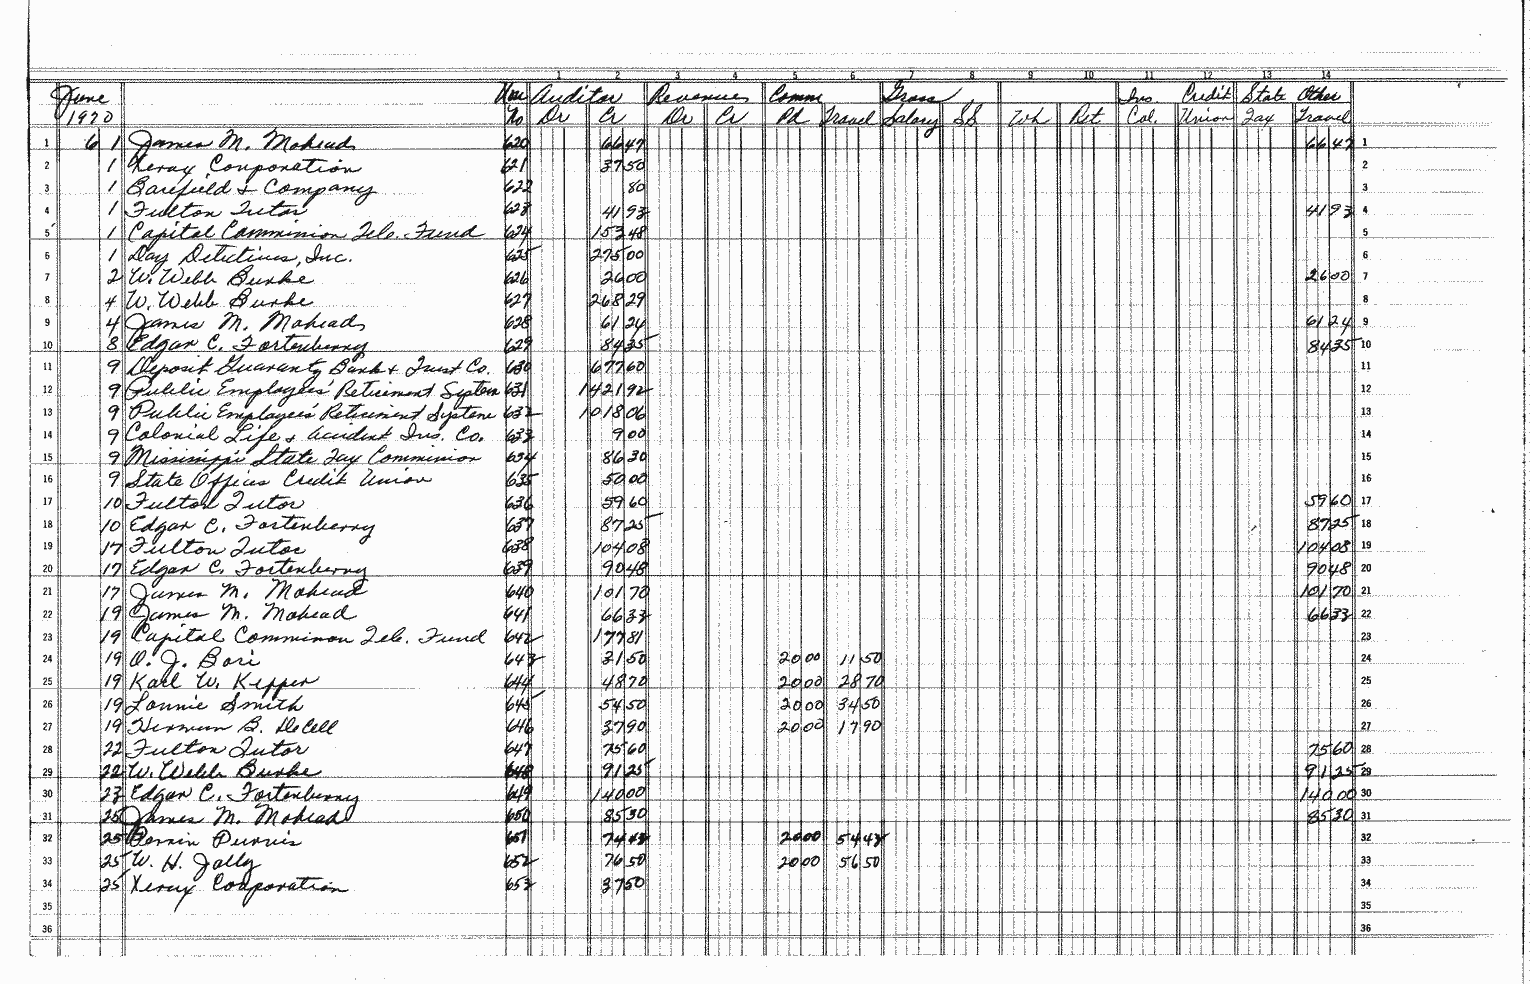 1 2 3 4 5 6 7 8 9 10 11 12 13 14
June Auditor Revenues Comm Gross Ins. Credit State Other
1970 No Dr Cr Dr Cr Pd Travel Salary SS Wh Ret Col. Union Tax Travel
1 6 1 James M. Mohead 620 66 47 66 47 1
2 1 Xerox Corporation 621 37 50 2
3 1 Barefield & Company 622 80 3
4 1 Fulton Tutor 623 41 93 41 93 4
5 1 Capital Commission Tele. Fund 624 153 48 5
6 1 Day Detectives, Inc. 625 275 00 6
7 2 W. Webb Burke 626 26 00 26 00 7
8 4 W. Webb Burke 627 268 29 8
9 4 James M. Mohead 628 61 24 61 24 9
10 8 Edgar C. Fortenberry 629 84 35 84 35 10
11 9 Deposit Guaranty Bank & Trust Co. 630 677 60 11
12 9 Public Employees' Retirement System 631 1421 92 12
13 9 Public Employees' Retirement System 632 1018 06 13
14 9 Colonial Life & Accident Ins. Co. 633 9 00 14
15 9 Mississippi State Tax Commission 634 86 30 15
16 9 State Offices Credit Union 635 50 00 16
17 10 Fulton Tutor 636 59 60 59 60 17
18 10 Edgar C. Fortenberry 637 87 25 87 25 18
19 17 Fulton Tutor 638 104 08 104 08 19
20 17 Edgar C. Fortenberry 639 90 48 90 48 20
21 17 James M. Mohead 640 101 70 101 70 21
22 19 James M. Mohead 641 66 33 66 33 22
23 19 Capital Commission Tele. Fund 642 177 81 23
24 19 O. J. Bori 643 31 50 20 00 11 50 24
25 19 Karl W. Kepper 644 48 70 20 00 28 70 25
26 19 Lonnie Smith 645 54 50 20 00 34 50 26
27 19 Herman B. DeCell 646 37 90 20 00 17 90 27
28 22 Fulton Tutor 647 75 60 75 60 28
29 22 W. Webb Burke 648 91 25 91 25 29
30 23 Edgar C. Fortenberry 649 140 00 140 00 30
31 25 James M. Mohead 650 85 30 85 30 31
32 25 Perrin Purvis 651 74 43 20 00 54 43 32
33 25 W. H. Jolly 652 76 50 20 00 56 50 33
34 25 Xerox Corporation 653 37 50 34
35 35
36 36